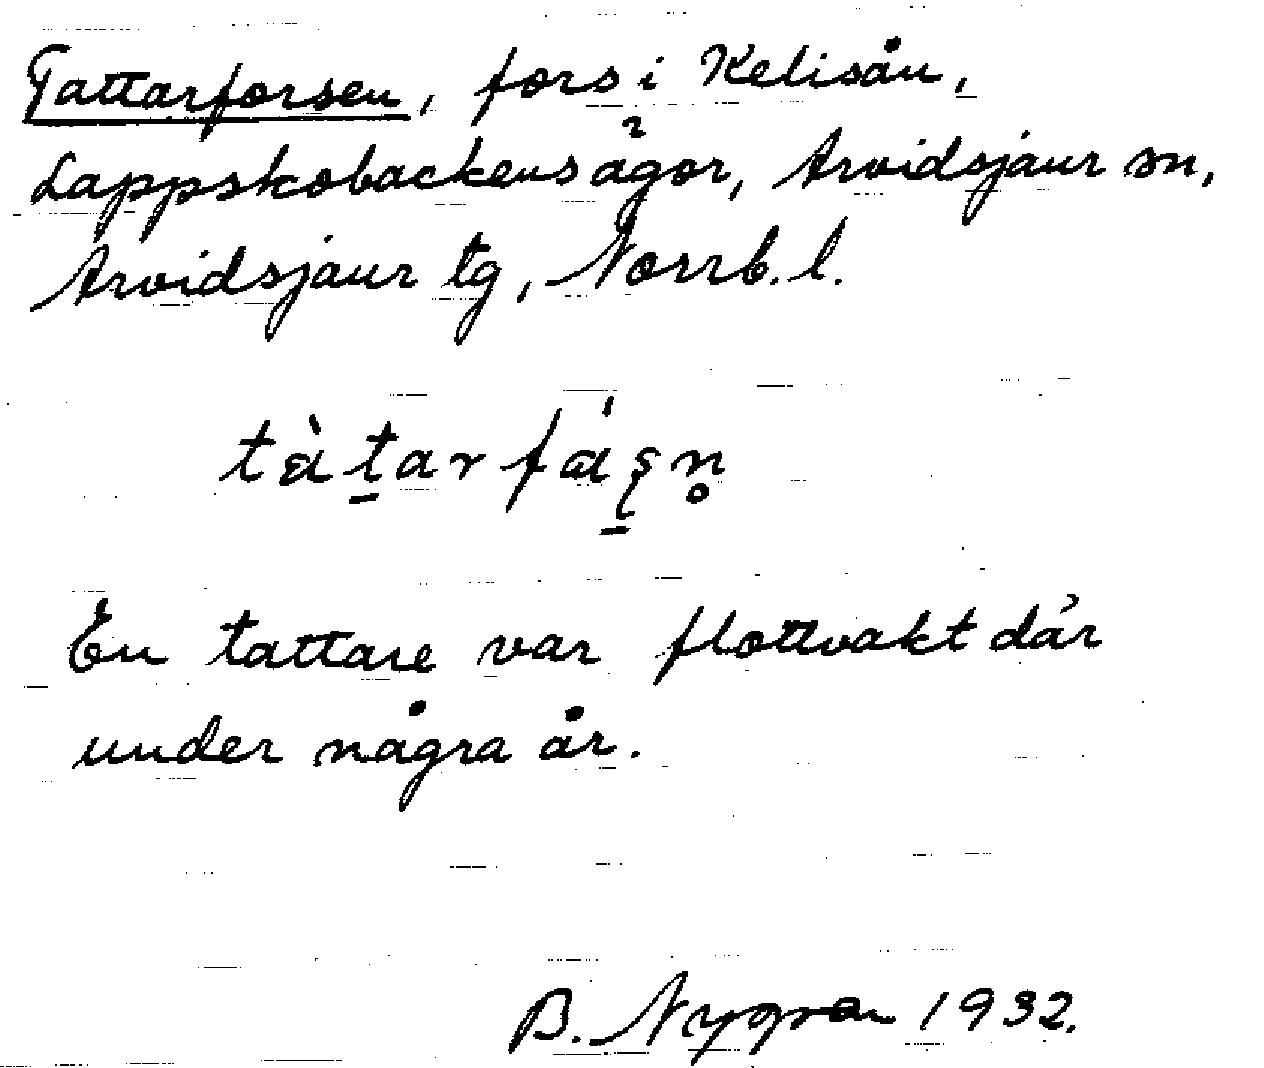 Tattarforsen, fors i Kelisån,
Lappskobackens ägor, Arvidsjaur sn,
Arvidsjaur tg, Norrb. l.
tàt̠arfa̍ʂ̠n̥
En tattare var flottvakt där
under några år.
B. Nygren 1932.